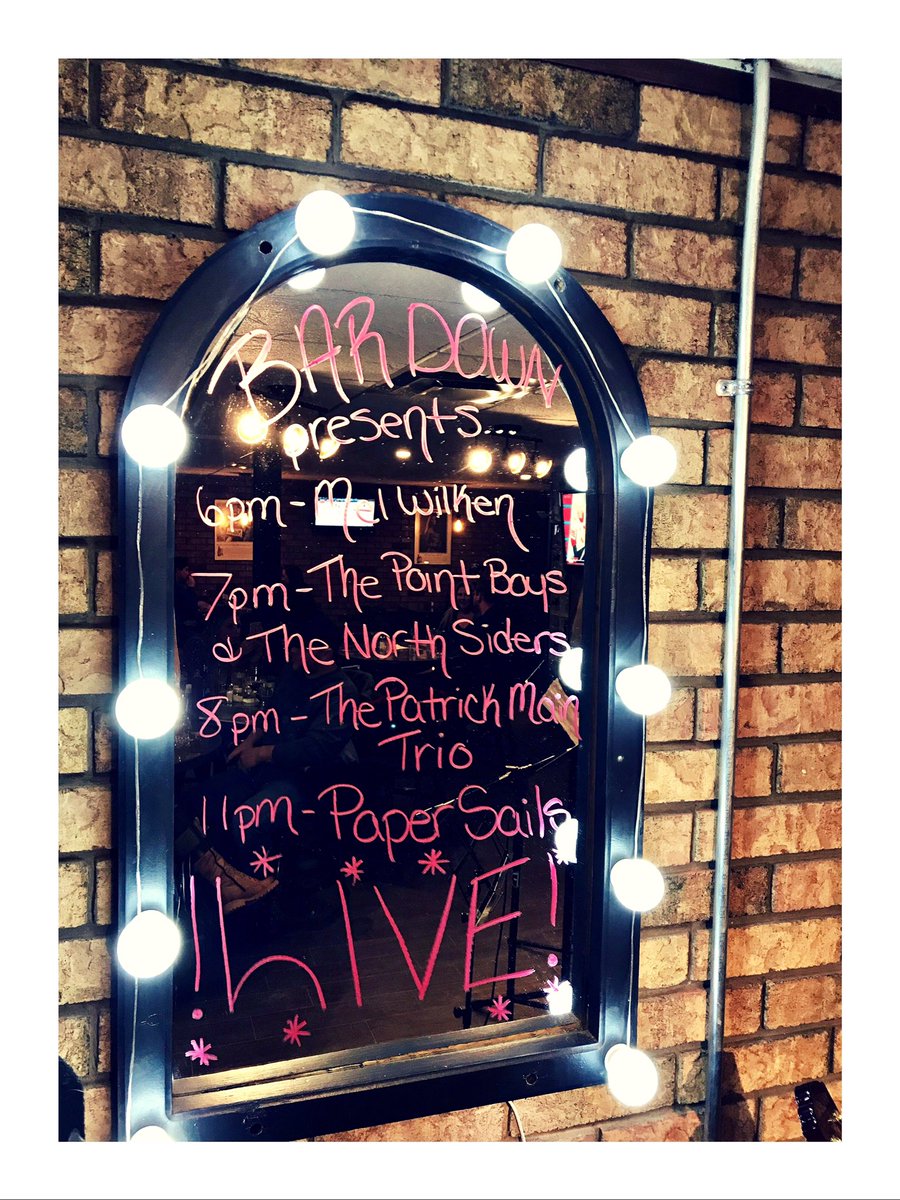 BAR DOWN
presents...
6pm - Mel Wilken
7pm - The Point Boys
& The North Siders
8pm - The Patrick Main
Trio
11pm - Paper Sails
!LIVE!